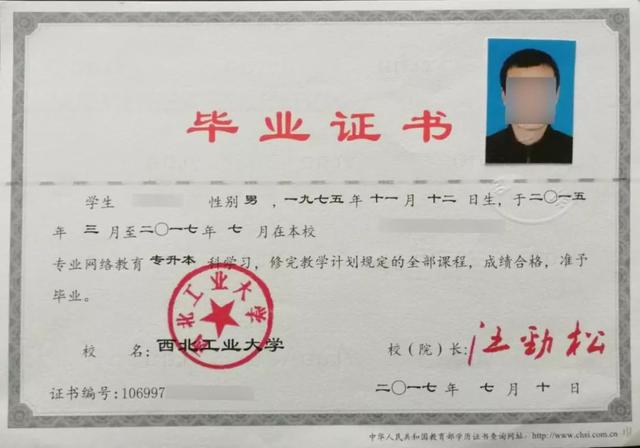 毕业证书
学生 性别 男 ，一九七五 年 十一 月 十二 日生，于 二〇一五
年 三 月至 二〇一七 年 七 月在本校
专业网络教育 专升本 科学习，修完教学计划规定的全部课程，成绩合格，准予
毕业。
西北工业大学
校 名：西北工业大学 校（院）长：汪劲松
二〇一七 年 七 月 十 日
证书编号：106997
中华人民共和国教育部学历证书查询网址：http://www.chsi.com.cn